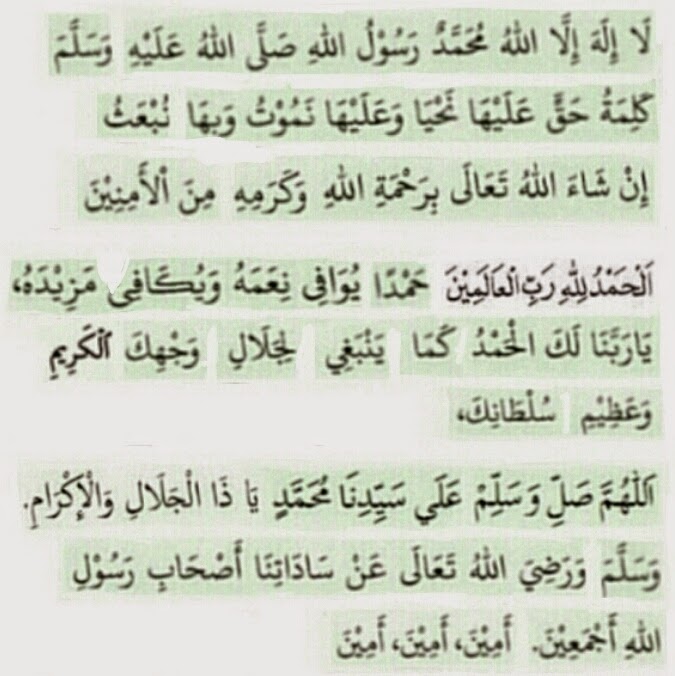 لَا إِلَهَ إِلَّا اللهُ مُحَمَّدٌ رَسُوْلُ اللهِ صَلَّى اللهُ عَلَيْهِ وَسَلَّمَ
كَلِمَةُ حَقٍّ عَلَيْهَا نَحْيَا وَعَلَيْهَا نَمُوْتُ وَبِهَا نُبْعَثُ
إِنْ شَاءَ اللهُ تَعَالَى بِرَحْمَةِ اللهِ وَكَرَمِهِ مِنَ الْأَمِنِيْنَ
اَلْحَمْدُ لِلهِ رَبِّ الْعَالَمِيْنَ حَمْدًا يُوَافِي نِعَمَهُ وَيُكَافِى مَزِيْدَهُ،
يَارَبَّنَا لَكَ الْحَمْدُ كَمَا يَنْبَغِي لِجَلَالِ وَجْهِكَ الْكَرِيمِ
وَعَظِيْمِ سُلْطَانِكَ،
اَللّٰهُمَّ صَلِّ وَسَلِّمْ عَلَي سَيِّدِنَا مُحَمَّدٍ يَا ذَا الْجَلَالِ وَالْإِكْرَامِ.
وَسَلَّمَ وَرَضِيَ اللهُ تَعَالَى عَنْ سَادَاتِنَا أَصْحَابِ رَسُوْلِ
اللهِ أَجْمَعِيْنَ. أَمِيْنَ، أَمِيْنَ، أَمِيْنَ